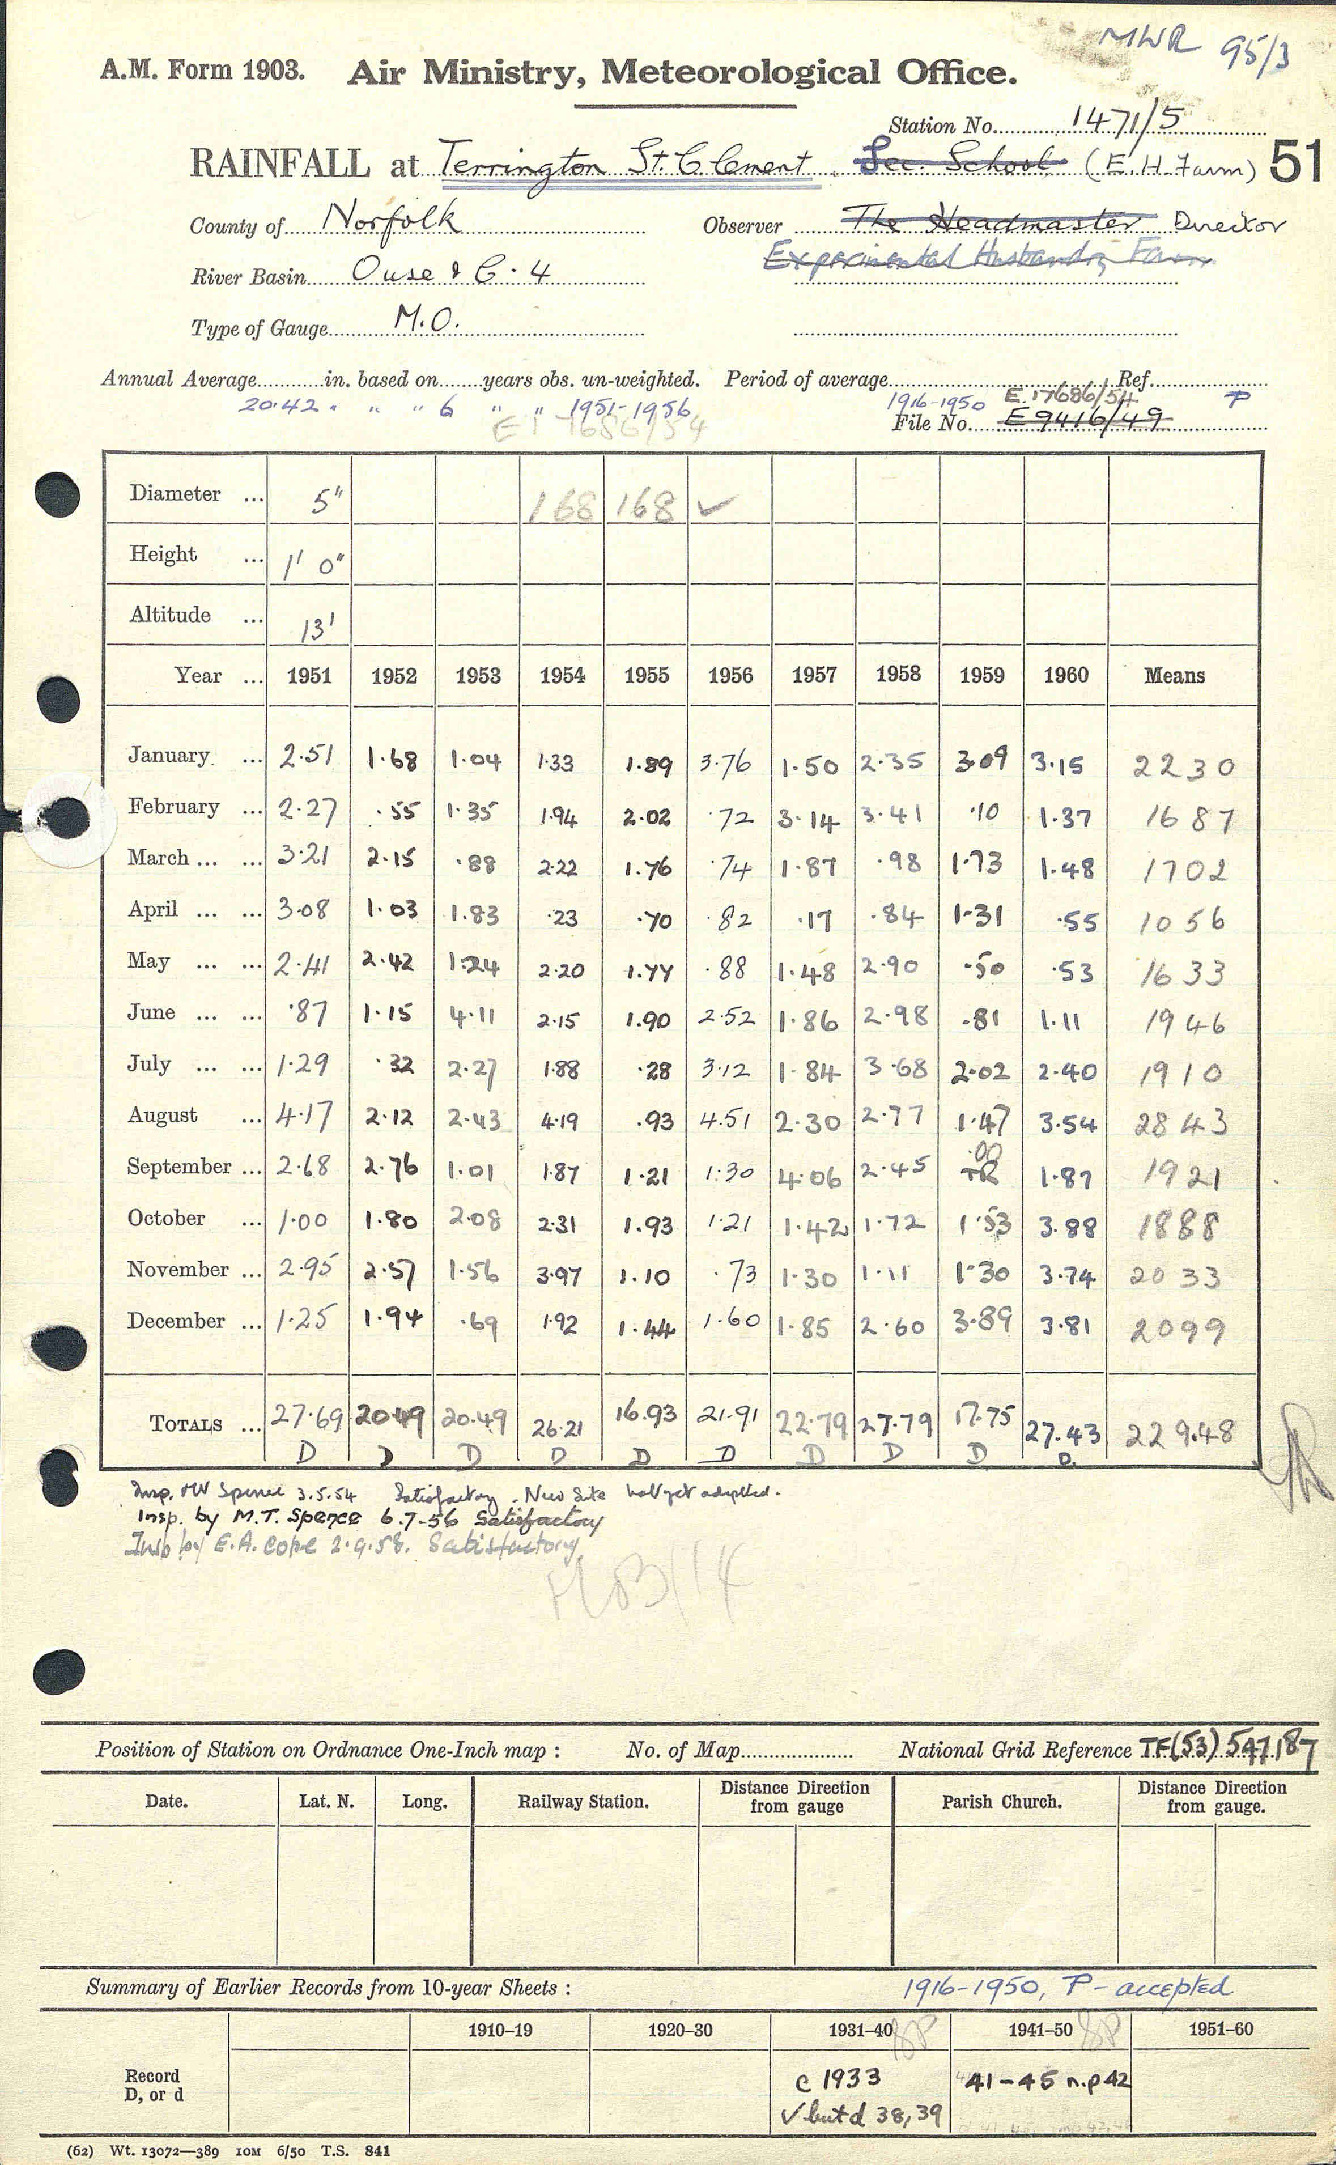 MWR 95/3
A.M. Form 1903. Air Ministry, Meteorological Office.
Station No. 1471/5
RAINFALL at Terrington St. Clement. Sec. School (E.H. Farm) 51
County of Norfolk Observer The Headmaster Director
Experimental Husbandry Farm
River Basin Ouse & C. 4
Type of Gauge M.O.
Annual Average in. based on years obs. un-weighted. Period of average Ref.
20.42 " " " 6 " " 1951-1956 1916-1950 E.17686/54 P
E17686/54 File No. E9416/49
Diameter ... 5" 168 168 ✓
Height ... 1' 0"
Altitude ... 13'
Year ... 1951 1952 1953 1954 1955 1956 1957 1958 1959 1960 Means
January ... 2.51 1.68 1.04 1.33 1.89 3.76 1.50 2.35 3.09 3.15 2230
February ... 2.27 .55 1.35 1.94 2.02 .72 3.14 3.41 .10 1.37 1687
March ... ... 3.21 2.15 .88 2.22 1.76 .74 1.87 .98 1.73 1.48 1702
April ... ... 3.08 1.03 1.83 .23 .70 .82 .17 .84 1.31 .55 1056
May ... ... 2.41 2.42 1.24 2.20 1.77 .88 1.48 2.90 .50 .53 1633
June ... ... .87 1.15 4.11 2.15 1.90 2.52 1.86 2.98 .81 1.11 1946
July ... ... 1.29 .32 2.27 1.88 .28 3.12 1.84 3.68 2.02 2.40 1910
August ... 4.17 2.12 2.43 4.19 .93 4.51 2.30 2.77 1.47 3.54 2843
September ... 2.68 2.76 1.01 1.87 1.21 1.30 4.06 2.45 .00 TR 1.87 1921
October ... 1.00 1.80 2.08 2.31 1.93 1.21 1.42 1.72 1.53 3.88 1888
November ... 2.95 2.57 1.56 3.97 1.10 .73 1.30 1.11 1.30 3.74 2033
December ... 1.25 1.94 .69 1.92 1.44 1.60 1.85 2.60 3.89 3.81 2099
TOTALS ... 27.69 20.49 20.49 26.21 16.93 21.91 22.79 27.79 17.75 27.43 229.48
D D D D D D D D D D.
Insp. MW Spence 3.5.54 Satisfactory. New Site not yet adopted.
Insp. by M.T. Spence 6.7-56 Satisfactory
Insp by E.A. Cope 2.9.58. Satisfactory
Position of Station on Ordnance One-Inch map : No. of Map National Grid Reference TF(53) 547187
Date. Lat. N. Long. Railway Station. Distance Direction from gauge Parish Church. Distance Direction from gauge.
Summary of Earlier Records from 10-year Sheets : 1916-1950, P-accepted
1910–19 1920–30 1931–40 1941–50 1951–60
Record D, or d c 1933 41-45 n.p 42
✓ but d 38, 39
(62) Wt. 13072—389 10M 6/50 T.S. 841